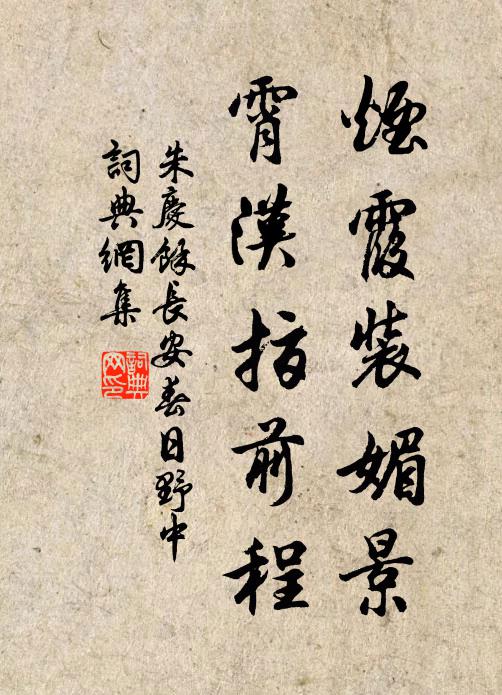 煙霞裝媚景
霄漢指前程
朱慶餘長安春日野中
詞典網集
詞典網印